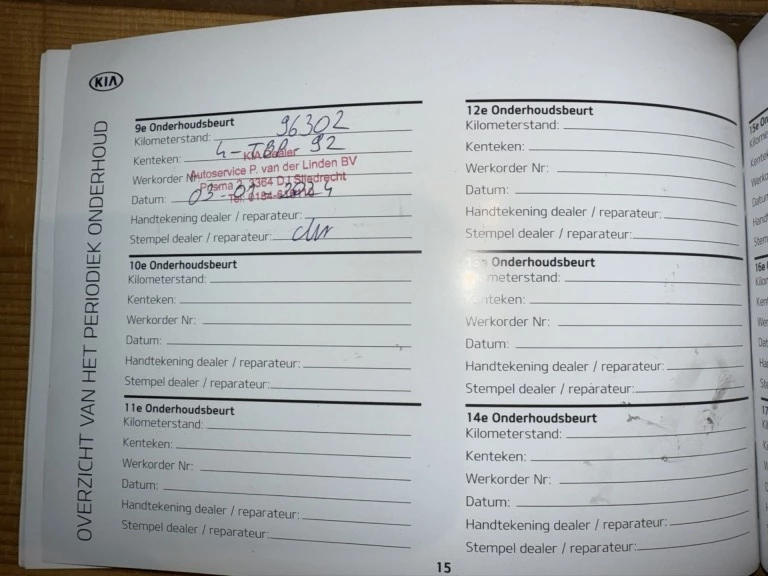 KIA
OVERZICHT VAN HET PERIODIEK ONDERHOUD
9e Onderhoudsbeurt
Kilometerstand: 96302
Kenteken: 4-TBR-92
KIA Dealer
Werkorder Nr
Autoservice P. van der Linden BV
Prisma 2, 3364 DJ Sliedrecht
Datum: 03-07-2024
Tel. 0184-
Handtekening dealer / reparateur:
Stempel dealer / reparateur:
10e Onderhoudsbeurt
Kilometerstand:
Kenteken:
Werkorder Nr:
Datum:
Handtekening dealer / reparateur:
Stempel dealer / reparateur:
11e Onderhoudsbeurt
Kilometerstand:
Kenteken:
Werkorder Nr:
Datum:
Handtekening dealer / reparateur:
Stempel dealer / reparateur:
12e Onderhoudsbeurt
Kilometerstand:
Kenteken:
Werkorder Nr:
Datum:
Handtekening dealer / reparateur:
Stempel dealer / reparateur:
Onderhoudsbeurt
meterstand:
Kenteken:
Werkorder Nr:
Datum:
Handtekening dealer / reparateur:
Stempel dealer / reparateur:
14e Onderhoudsbeurt
Kilometerstand:
Kenteken:
Werkorder Nr:
Datum:
Handtekening dealer / reparateur:
Stempel dealer / reparateur:
15